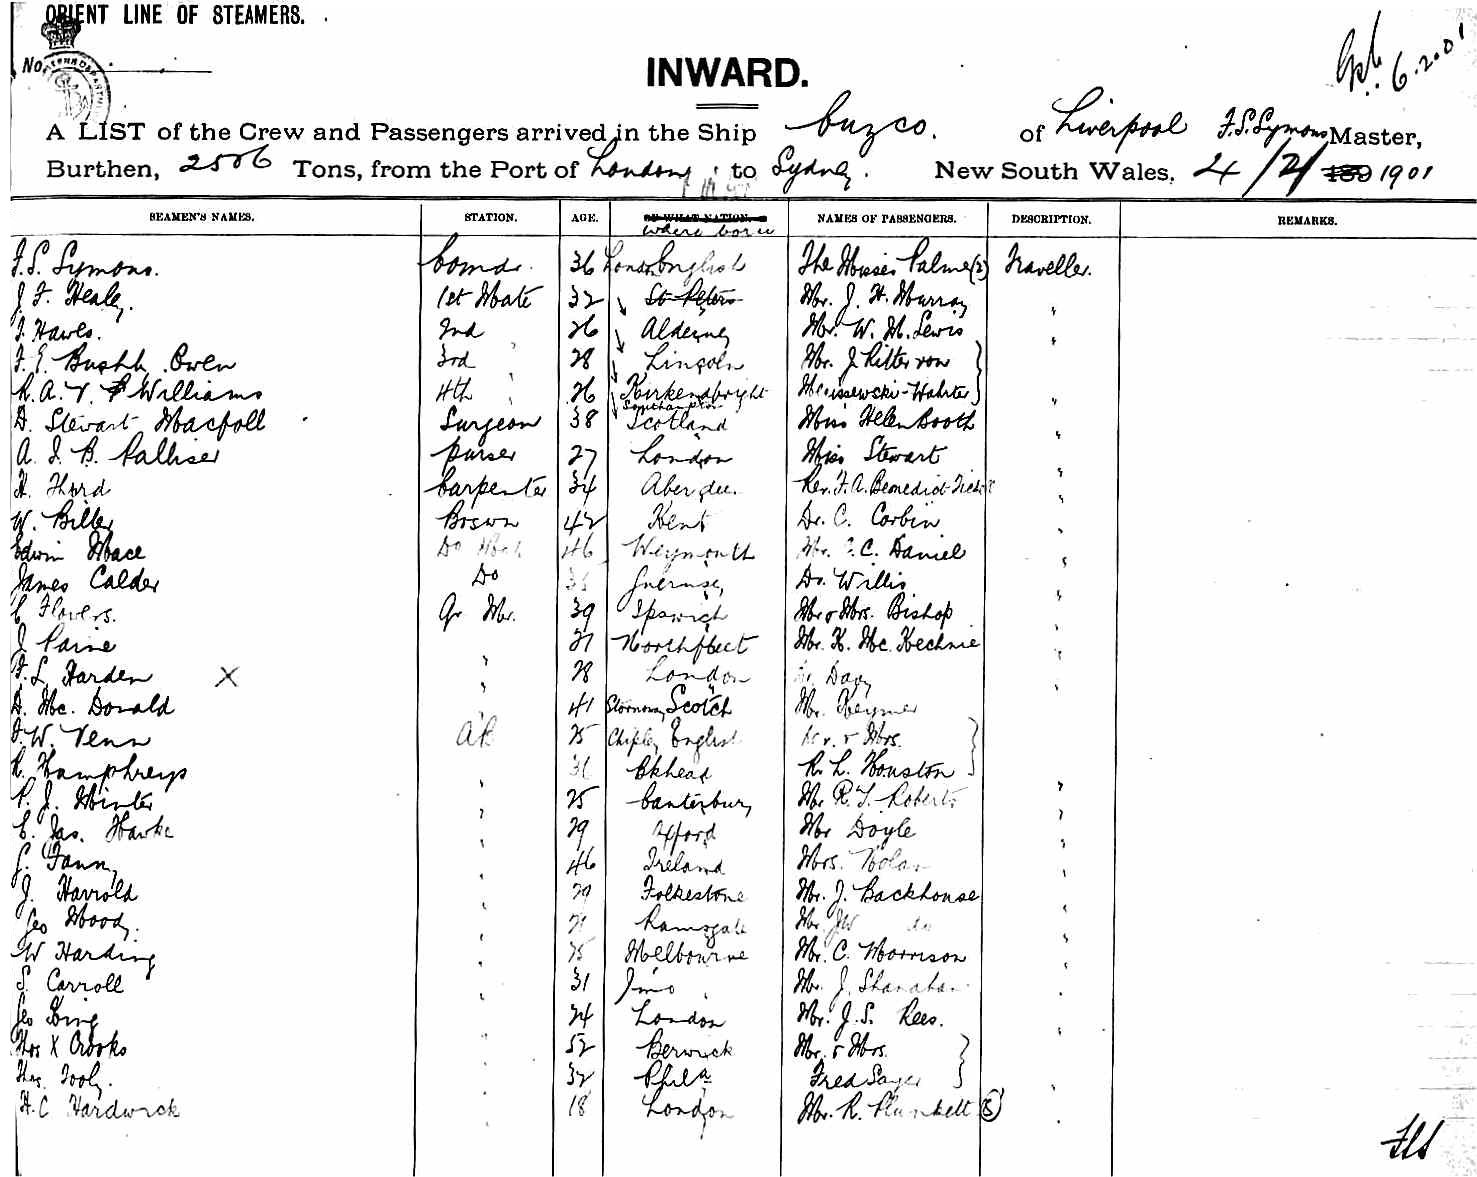 ORIENT LINE OF STEAMERS.
No.
6.2.01
INWARD.
A LIST of the Crew and Passengers arrived in the Ship Cuzco. of Liverpool F.S. Symons Master,
Burthen, 2506 Tons, from the Port of London to Sydney. New South Wales, 4/2/ 189 1901
SEAMEN'S NAMES. STATION. AGE. OF WHAT NATION. NAMES OF PASSENGERS. DESCRIPTION. REMARKS.
where born
F.S. Symons. Comdr. 36 London English The Misses Palmer (2) Traveller.
J F. Healey. 1st Mate 32 St Peters Mr. J. H. Murray "
F. Hawes. 2nd " 26 Alderney Mr. W. M. Lewis "
F. E. Owen 3rd " 28 Lincoln Mr. J. Ritter von
R. A. V. Williams 4th " 26 Kirkendbright "
Southampton
D. Stewart Macfoll Surgeon 38 Scotland Miss Helen Booth "
A. J. B. Palliser Purser 27 London Miss Stewart "
H. Carpenter 34 Aberdee. Rev. F. A. Benedict "
W. Biller Boswn 42 Kent Dr. C. Corbin "
Edwin Mace Do 46 Weymouth Mr. C. Daniel "
James Calder Do Guernsey Do. Willis "
C Flowers. Qr Mr. 39 Ipswich Mr & Mrs. Bishop "
J Paine " Northfleet Mr. K. Mc. Kechnie "
F. L. Harden X " 28 London Davy "
D. Mc. Donald " 41 Stornoway Scotch Mr. Keymer
F. W. Venn AB 25 Chipley English Mr. & Mrs.
R. Humphreys " Bkhead R. L. Houston "
P. J. Minter " 25 Canterbury Mr R. T. Roberts "
C. Jas. Hawke " 29 Mr Doyle "
" 46 Ireland Mrs. Nolan "
J. Harrold " 29 Folkestone Mr. J. Backhouse "
Geo Moody. " Ramsgate Mr. JW do "
W Harding " 25 Melbourne Mr. C. Morrison "
S. Carroll " 31 Mr. J. Shanahan "
Geo " 24 London Mr. J. S. Rees. "
Thos X Crooks " 52 Berwick Mr. & Mrs.
Thos. Tooly. " 32 Phila Fred Sayer "
H. C Hardwick " 18 London Mr. R. Plunkett "